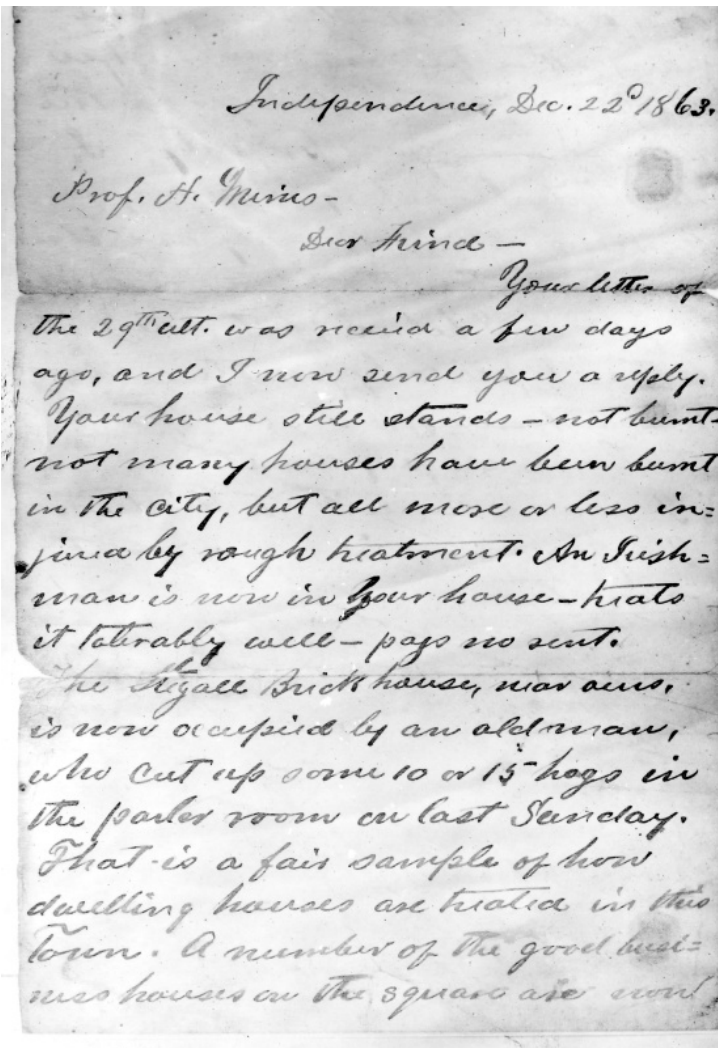 Independence, Dec. 22d 1863.
Prof. A. Mims-
Dear Friend —
Your letter of
the 29th ult. was receivd a few days
ago, and I now send you a reply.
Your house still stands – not burnt-
not many houses have been burnt
in the city, but all more or less in=
jured by rough treatment. An Irish=
man is now in your house – treats
it tolerably well – pays no rent.
The Stegall Brick house, near ours,
is now occupied by an old man,
who cut up some 10 or 15 hogs in
the parlor room on last Sunday.
That is a fair sample of how
dwelling houses are treated in this
Town. A number of the good busi=
ness houses on the square are now